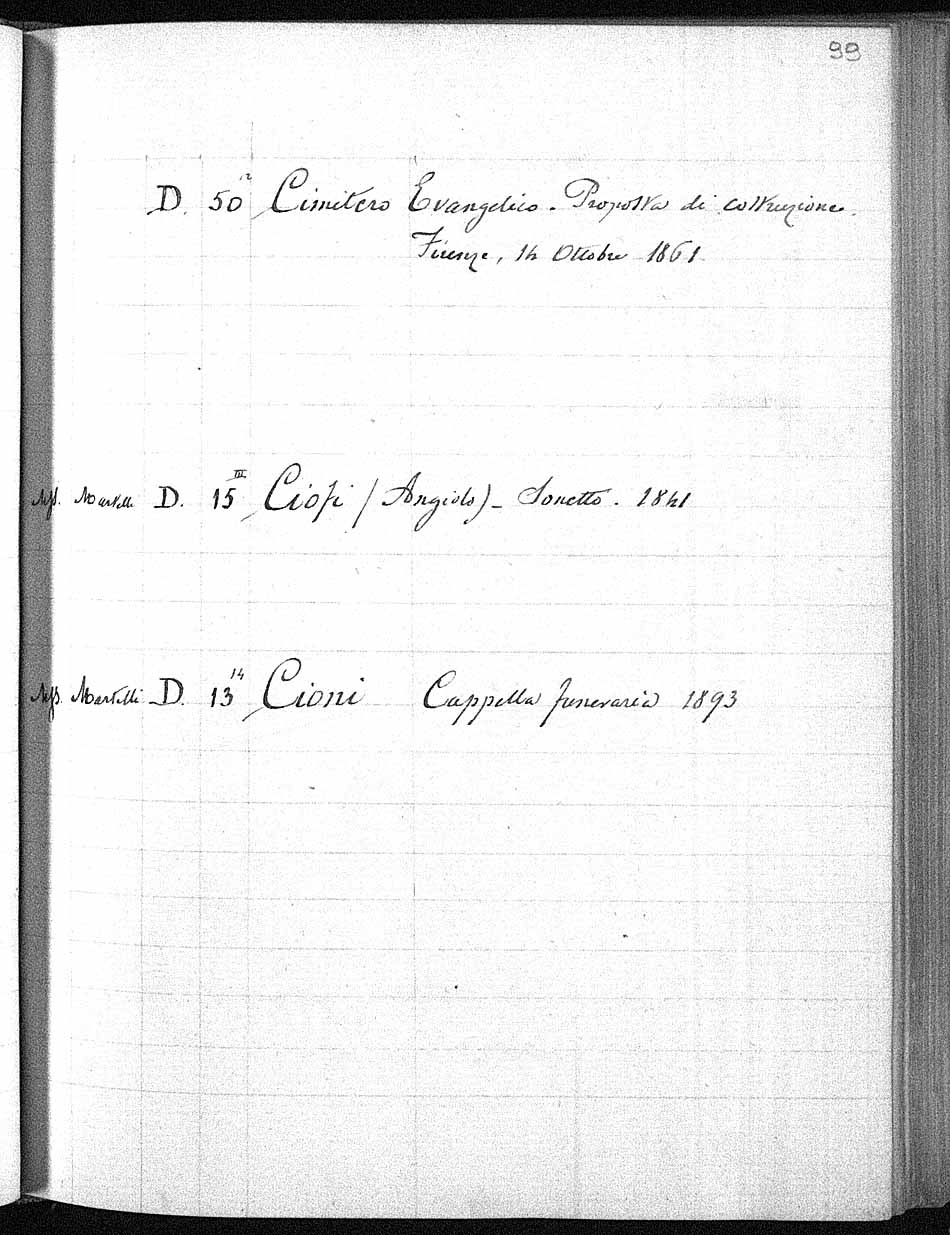 99
D. 50² Cimitero Evangelico - Proposta di costruzione.
Firenze, 14 Ottobre 1861
Mss. Martelli D. 15 III Ciofi (Angiolo) - Sonetto. 1841
Mss. Martelli D. 13 14 Cioni Cappella funeraria 1893